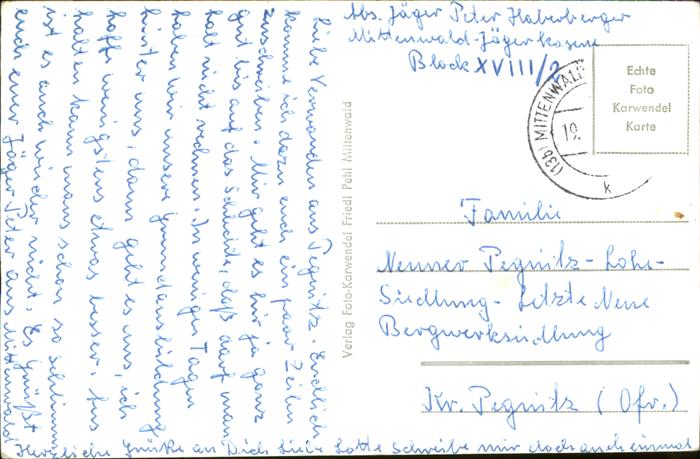 Abs. Jäger Peter Haberberger
Mittenwald-Jägerkaserne
Block XVIII/2
Echte
Foto
Karwendel
Karte
(13b) MITTENWALD
19.
k
Liebe Verwandten aus Pegnitz. Endlich
komme ich dazu euch ein paar Zeilen
zuschreiben. Mir geht es hir ja ganz
gut bis auf das daß darf man
halt nicht nehmen. In wenigen Tagen
haben wir unsere grundausbildung
hinter uns, dann geht es uns, ich
hoffe wenigstens etwas besser. Aus
halten kann mans schon so schlimm
ist es auch wieder nicht. Es Grüßt
euch euer Jäger Peter aus Mittenwald
Herzliche Grüße an Dich liebe Lotte schreibe mir doch auch einmal
Verlag Foto-Karwendel Friedl Pehl Mittenwald
Familie
Nenner Pegnitz-Lohe-
Siedlung- Letzte Neue
Bergwerksiedlung
Kr. Pegnitz (Ofr.)